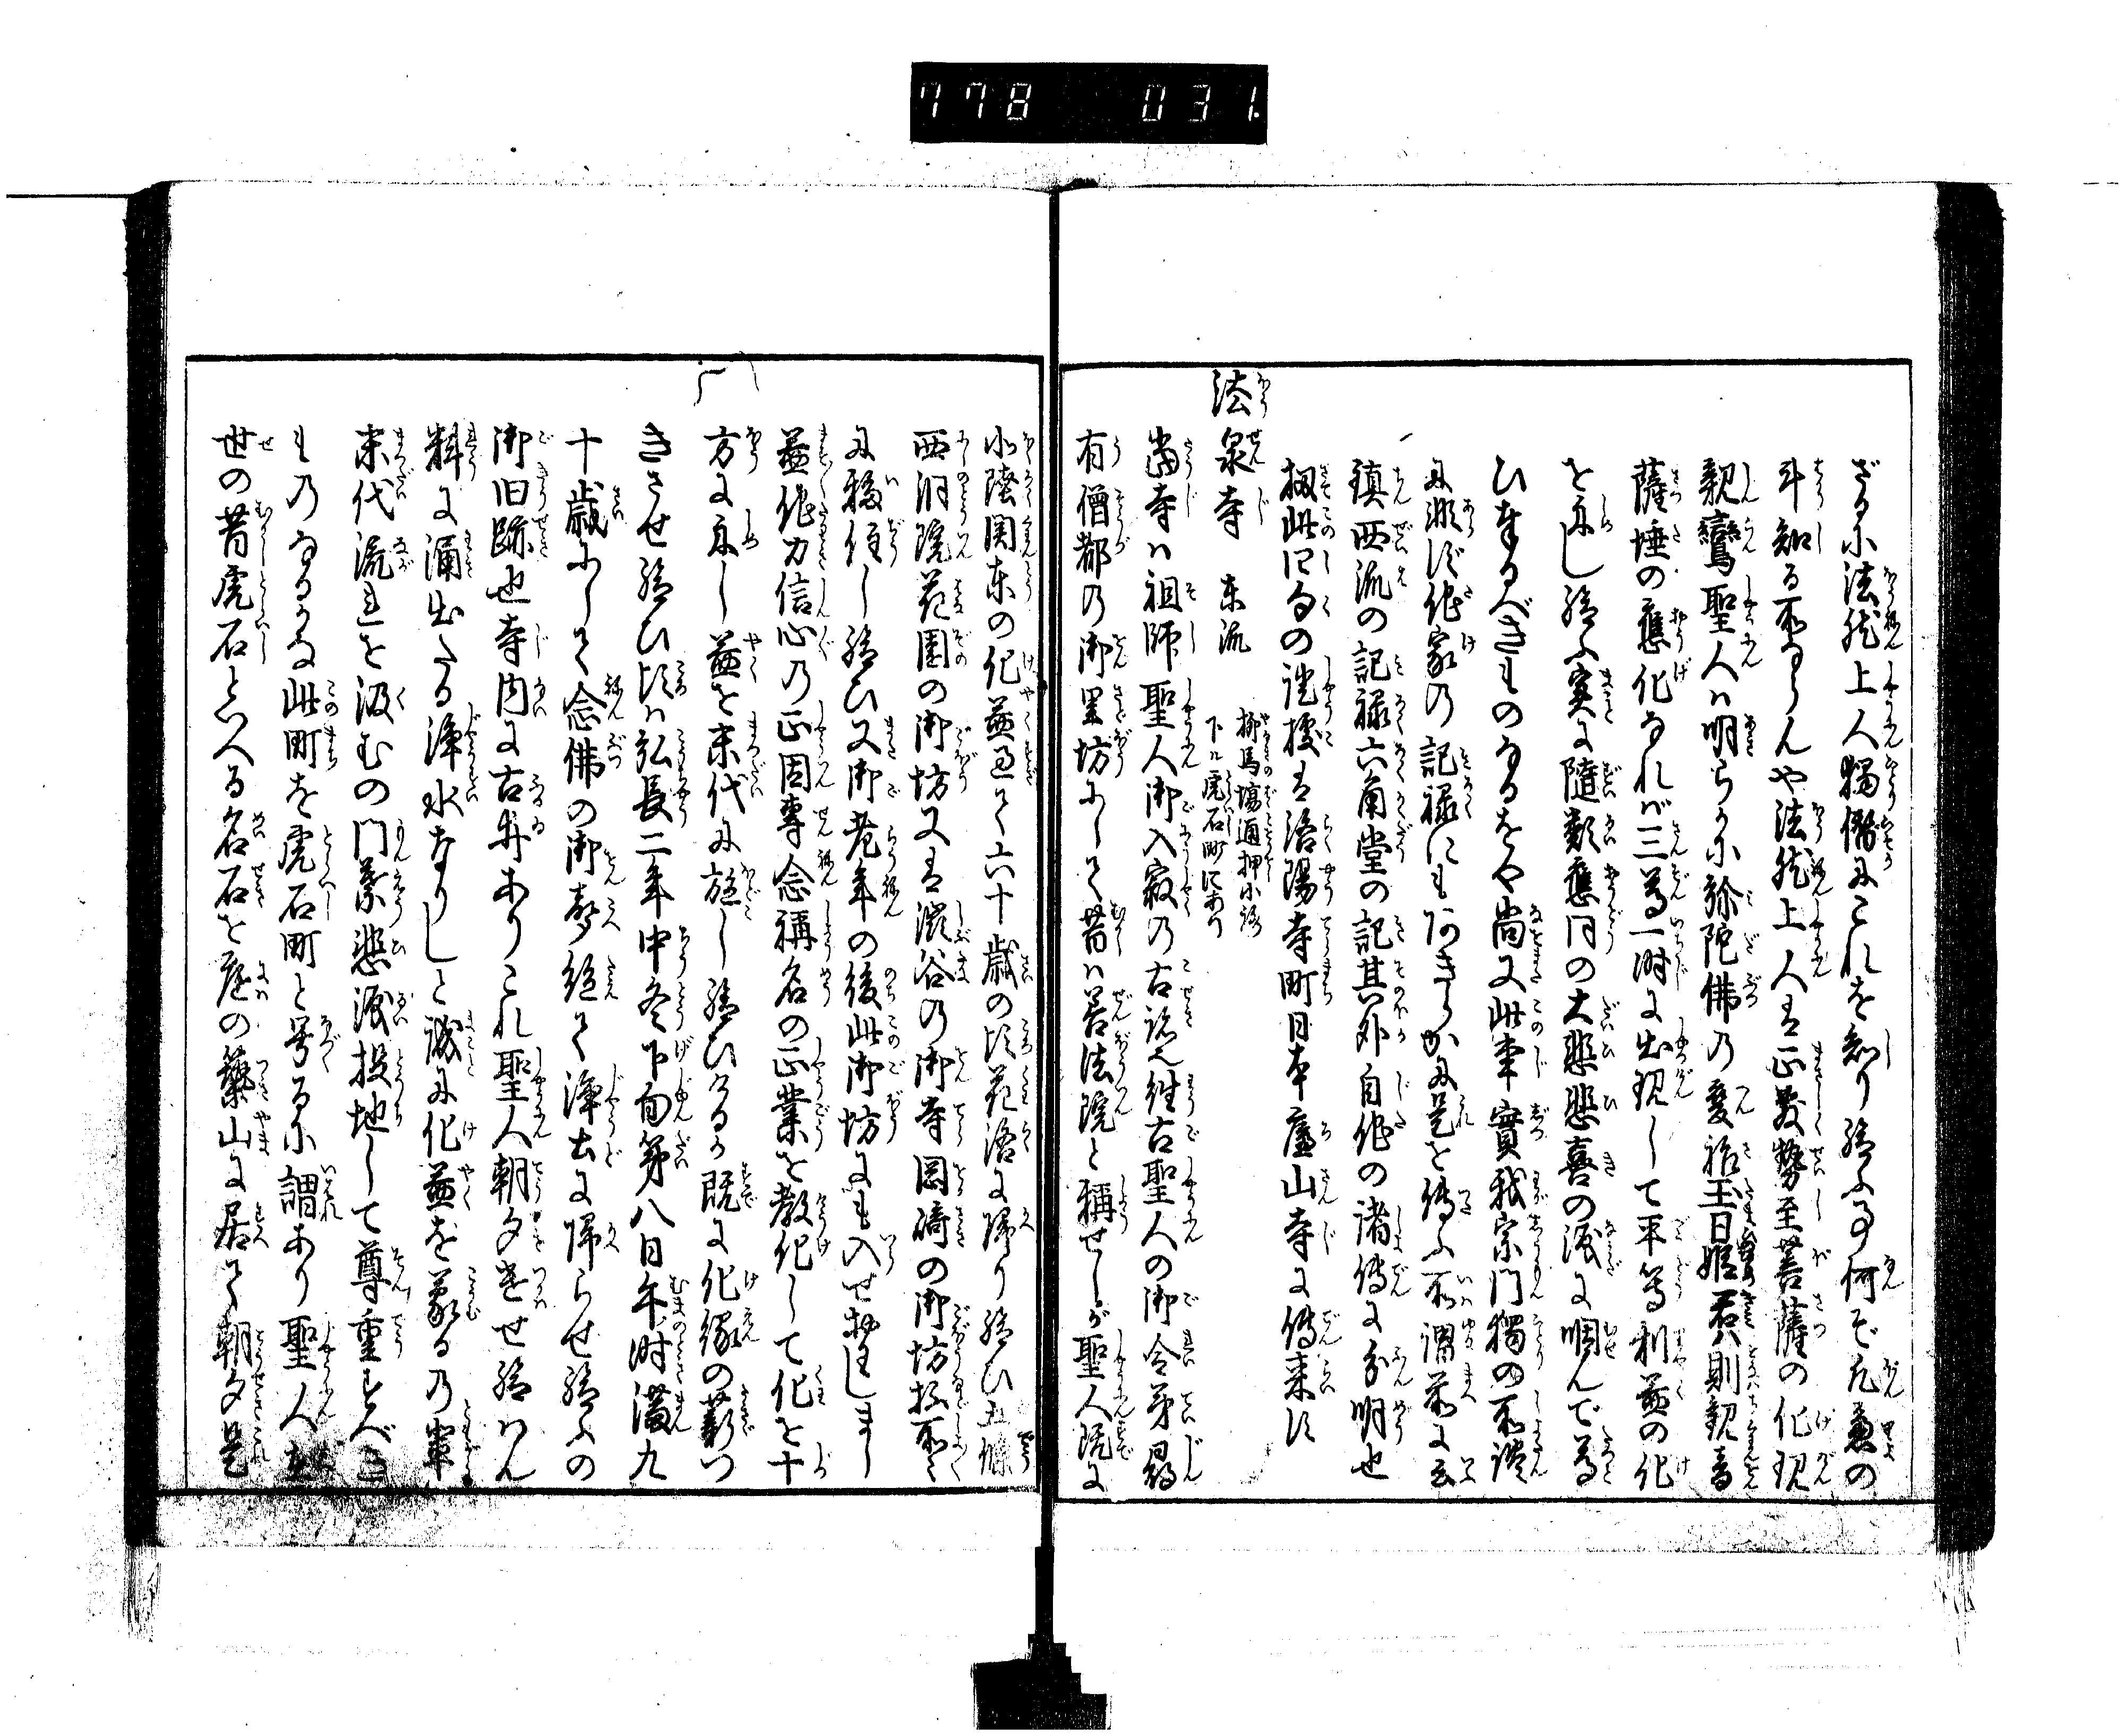 778 031
ざるに法然上人獨僭にこれを知り給ふ事何ぞ凡慮の
斗知る所ならんや法然上人は正敷勢至菩薩の化現
親鸞聖人ハ明らかに弥陀佛の変作玉日姫君ハ則観音
薩埵の應化なれバ三尊一時に出現して平等利益の化
を示し給ふ実に隨類應同の大悲悲喜の涙に咽んで尊
ひ奉るべきものなるをや尚又此事實我宗門獨の所談
に非ず他家の記禄にも明きらかに是を傳ふ所謂前に云
鎮西流の記禄六角堂の記其外自他の諸傳に分明也
扨此四句の證據は洛陽寺町日本廬山寺に傳来す
法泉寺 東流 柳馬場通押小路
下ル虎石町にあり
當寺ハ祖師聖人御入寂の古跡也往古聖人の御令弟尋
有僧都の御里坊にして昔ハ善法院と稱せしが聖人既に
北陸関東の化益過て六十歳の頃花洛に帰り給ひ五條
西洞院花園の御坊又は澁谷の御寺岡崎の御坊抔所々
に移住し給ひ又御老年の後此御坊にも入せ批まし
益他力信心の正因專念稱名の正業を教化して化を十
方に示し益を末代に施し給ひけるが既に化縁の薪つ
きさせ給ひ頃ハ弘長二年中冬下旬第八日午時滿九
十歳にして念佛の御聲絶て淨土に帰らせ給ふの
御旧跡也寺内に古井ありこれ聖人朝夕せ給はん
料に涌出たる淨水なりしと誠に化益を蒙るの輩
末代流れを汲むの門葉悲涙投地して尊重すべき
ものなるかな此町を虎石町と号るに謂あり聖人在
世の昔虎石といへる名石を庭の築山に居て朝夕是